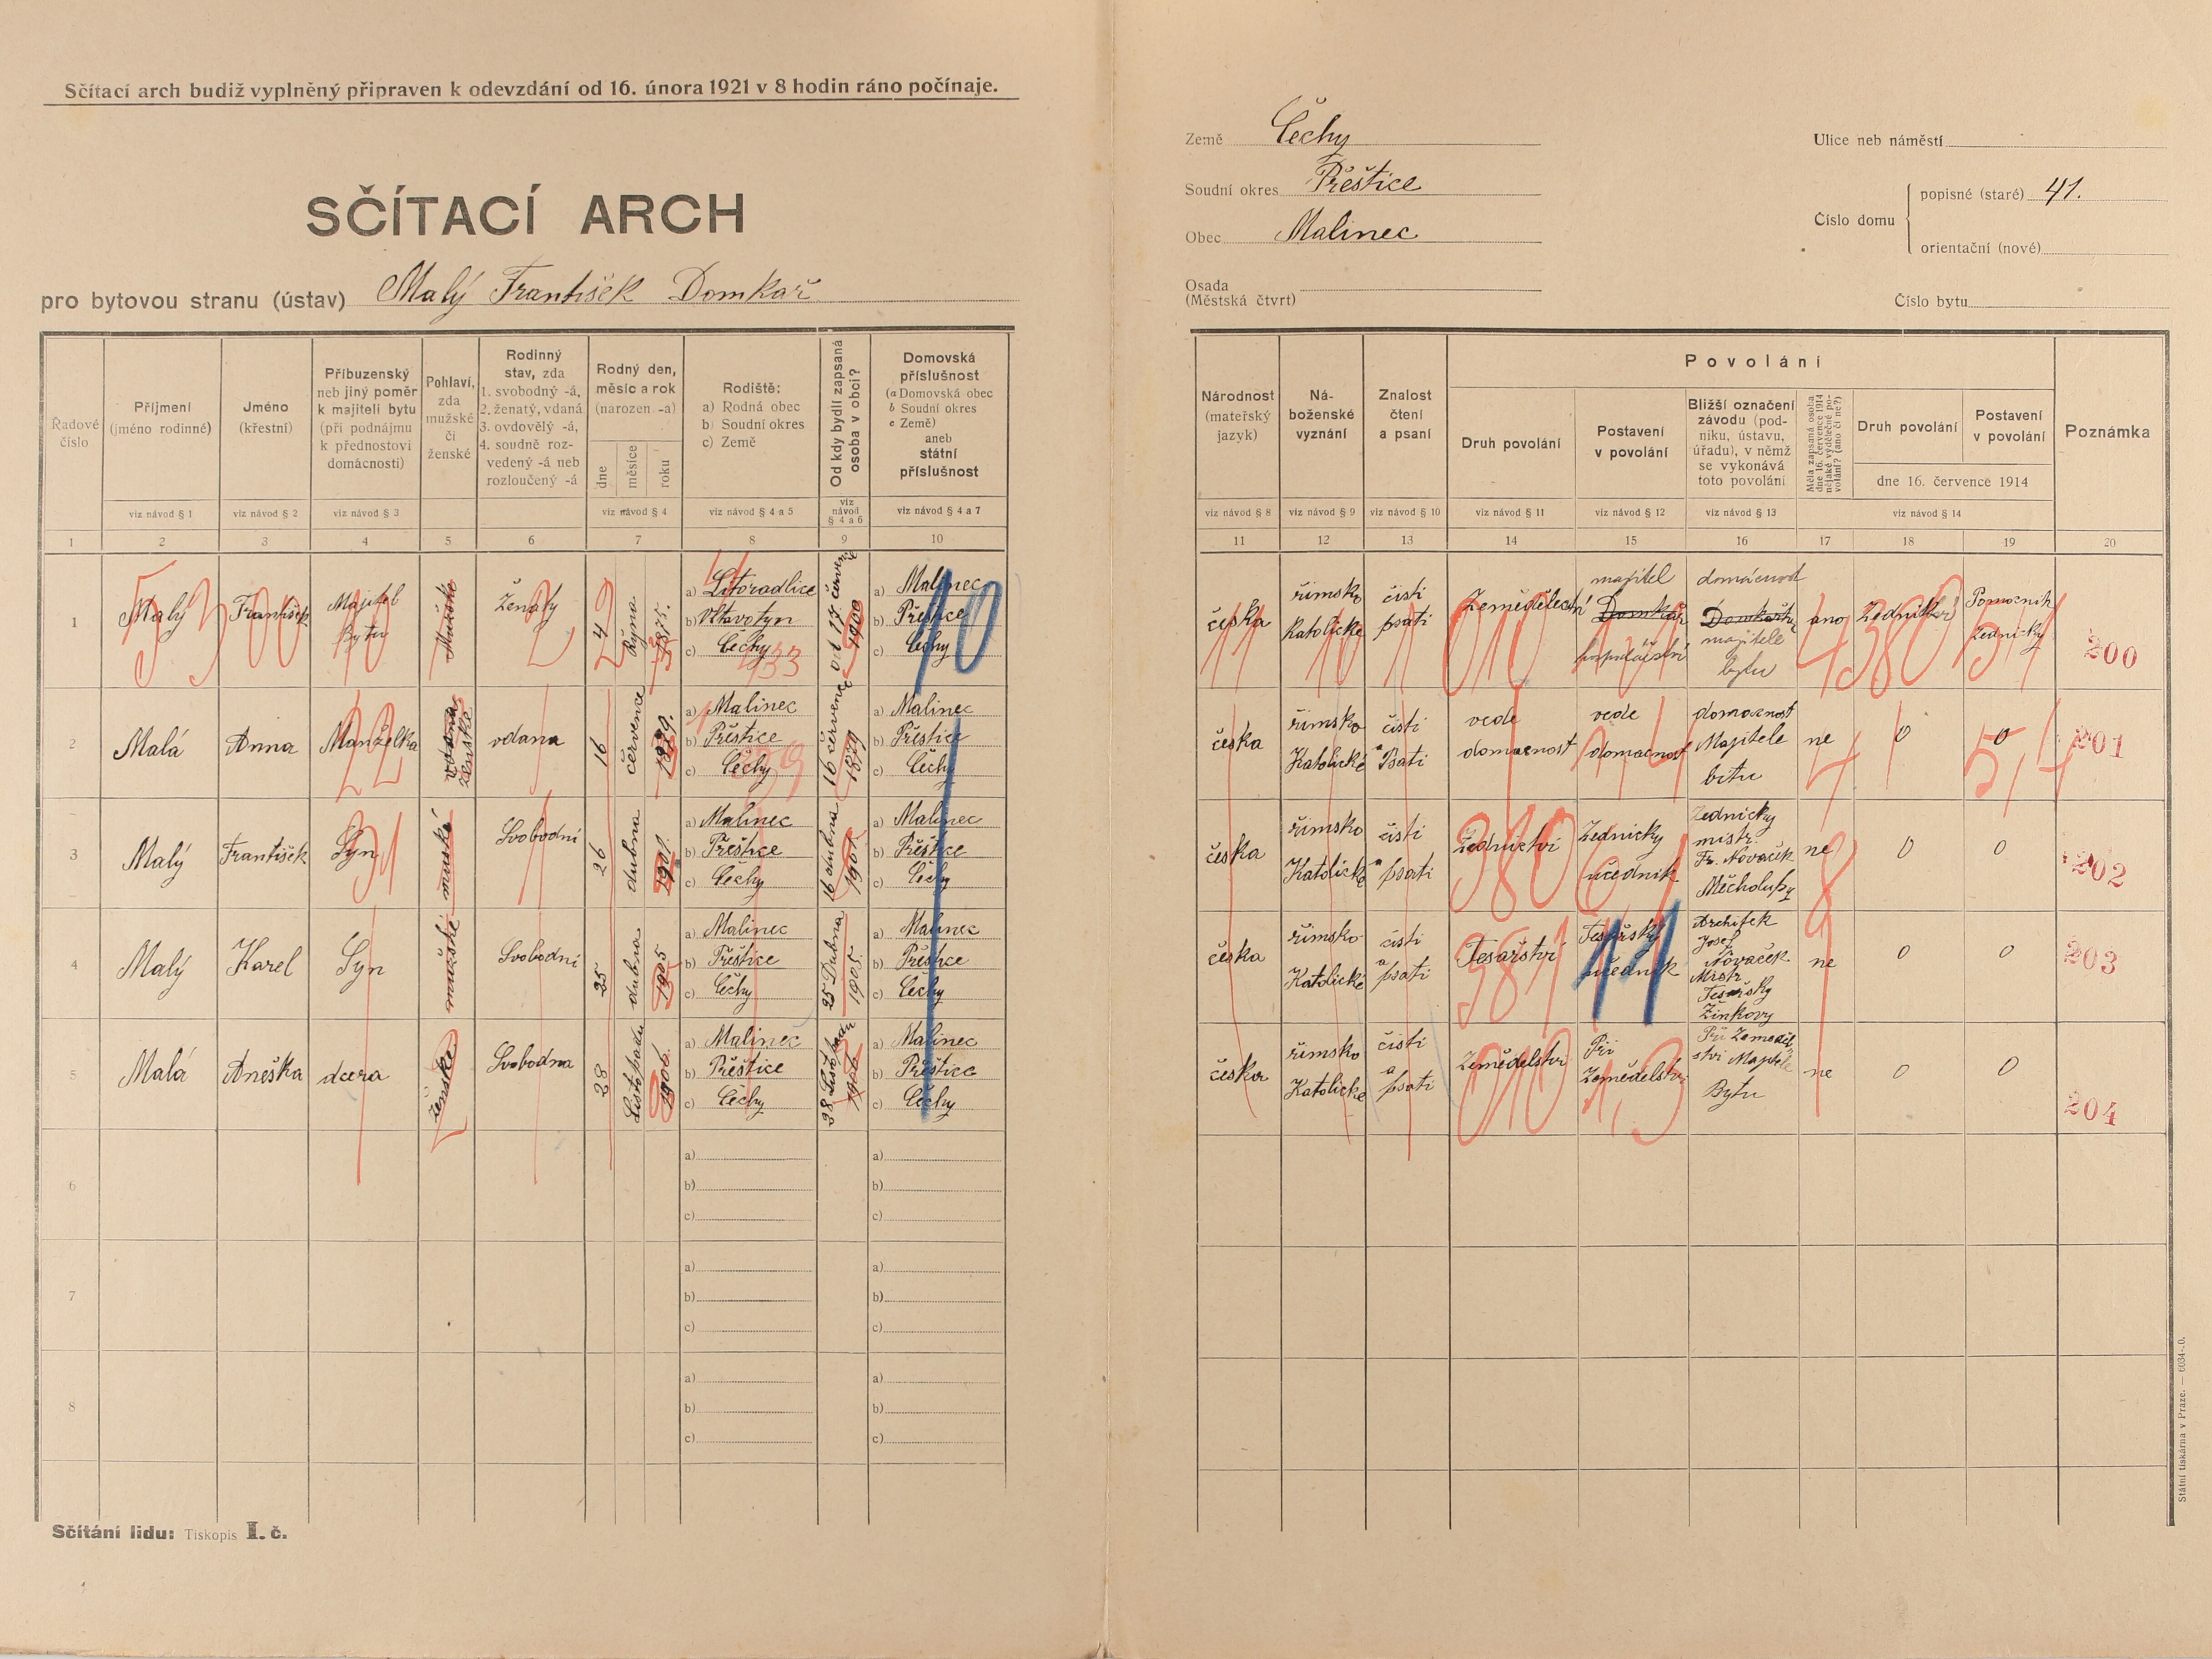 Sčítací arch budiž vyplněný připraven k odevzdání od 16. února 1921 v 8 hodin ráno počínaje.
SČÍTACÍ ARCH
pro bytovou stranu (ústav) Malý František Domkař
Země Čechy
Soudní okres Přeštice
Obec Malinec
Osada
(Městská čtvrt)
Ulice neb náměstí
Číslo domu
popisné (staré) 41.
orientační (nové)
Číslo bytu
Řadové číslo
Příjmení (jméno rodinné)
Jméno (křestní)
Příbuzenský neb jiný poměr k majiteli bytu (při podnájmu k přednostovi domácnosti)
Pohlaví, zda mužské či ženské
Rodinný stav, zda 1. svobodný -á, 2. ženatý, vdaná 3. ovdovělý -á, 4. soudně rozvedený -á neb rozloučený -á
Rodný den, měsíc a rok (narozen -a)
dne měsíce roku
Rodiště: a) Rodná obec b) Soudní okres c) Země
Od kdy bydlí zapsaná osoba v obci?
Domovská příslušnost (a Domovská obec b Soudní okres c Země) aneb státní příslušnost
viz návod § 1 viz návod § 2 viz návod § 3 viz návod § 4 viz návod § 4 a 5 viz návod § 4 a 6 viz návod § 4 a 7
1 2 3 4 5 6 7 8 9 10
Národnost (mateřský jazyk)
Náboženské vyznání
Znalost čtení a psaní
Povolání
Druh povolání
Postavení v povolání
Bližší označení závodu (podniku, ústavu, úřadu), v němž se vykonává toto povolání
Měla zapsaná osoba dne 16. července 1914 nějaké výdělečné povolání? (ano či ne?)
Druh povolání
Postavení v povolání
dne 16. července 1914
Poznámka
viz návod § 8 viz návod § 9 viz návod § 10 viz návod § 11 viz návod § 12 viz návod § 13 viz návod § 14
11 12 13 14 15 16 17 18 19 20
1 Malý František Majitel Bytu Mužské Ženatý 24 Října 1875.
a) Litoradlice
b) Vltavotyn
c) Čechy
1900
a) Malinec
b) Přeštice
c) Čechy
česka římsko Katolické čisti psati
majitel Domkař hospodářství
domácnost Domkařství majitele bytu
ano Pomocník Zednický
200
2 Malá Anna Manželka vdana ženské vdana 16 července 1879.
a) Malinec
b) Přeštice
c) Čechy
16 července 1879
a) Malinec
b) Přeštice
c) Čechy
česka římsko Katolické čisti a Psati
vede domacnost
vede domacnost
domacnost Majitele bitu
ne 0 0
201
3 Malý František Syn muské Svobodní 26 dubna 1901.
a) Malinec
b) Přeštice
c) Čechy
16 dubna 1901.
a) Malinec
b) Přeštice
c) Čechy
česka římsko Katolické čisti a psati
Zednictví
Zednicky učedník
Zednicky mistr Fr. Nováček Měcholupy
ne 0 0
202
4 Malý Karel Syn mužské Svobodní 25 dubna 1905
a) Malinec
b) Přeštice
c) Čechy
25 Dubna 1905.
a) Malinec
b) Přeštice
c) Čechy
česka římsko Katolické čisti a psati
Tesařství
Tesařský učedník
Architek Josef Nováček Mistr Tesařsky Žinkovy
ne 0 0
203
5 Malá Aneška dcera ženske Svobodna 28 Listopadu 1906.
a) Malinec
b) Přeštice
c) Čechy
28 Listopadu 1906
a) Malinec
b) Přeštice
c) Čechy
česka římsko Katolické čisti a psati
Zemědelství
Při Zemědelství
Při Zemědělství Majitele Bytu
ne 0 0
204
6
a)
b)
c)
a)
b)
c)
7
a)
b)
c)
a)
b)
c)
8
a)
b)
c)
a)
b)
c)
Sčítání lidu: Tiskopis I. č.
Státní tiskárna v Praze. — 6034-20.